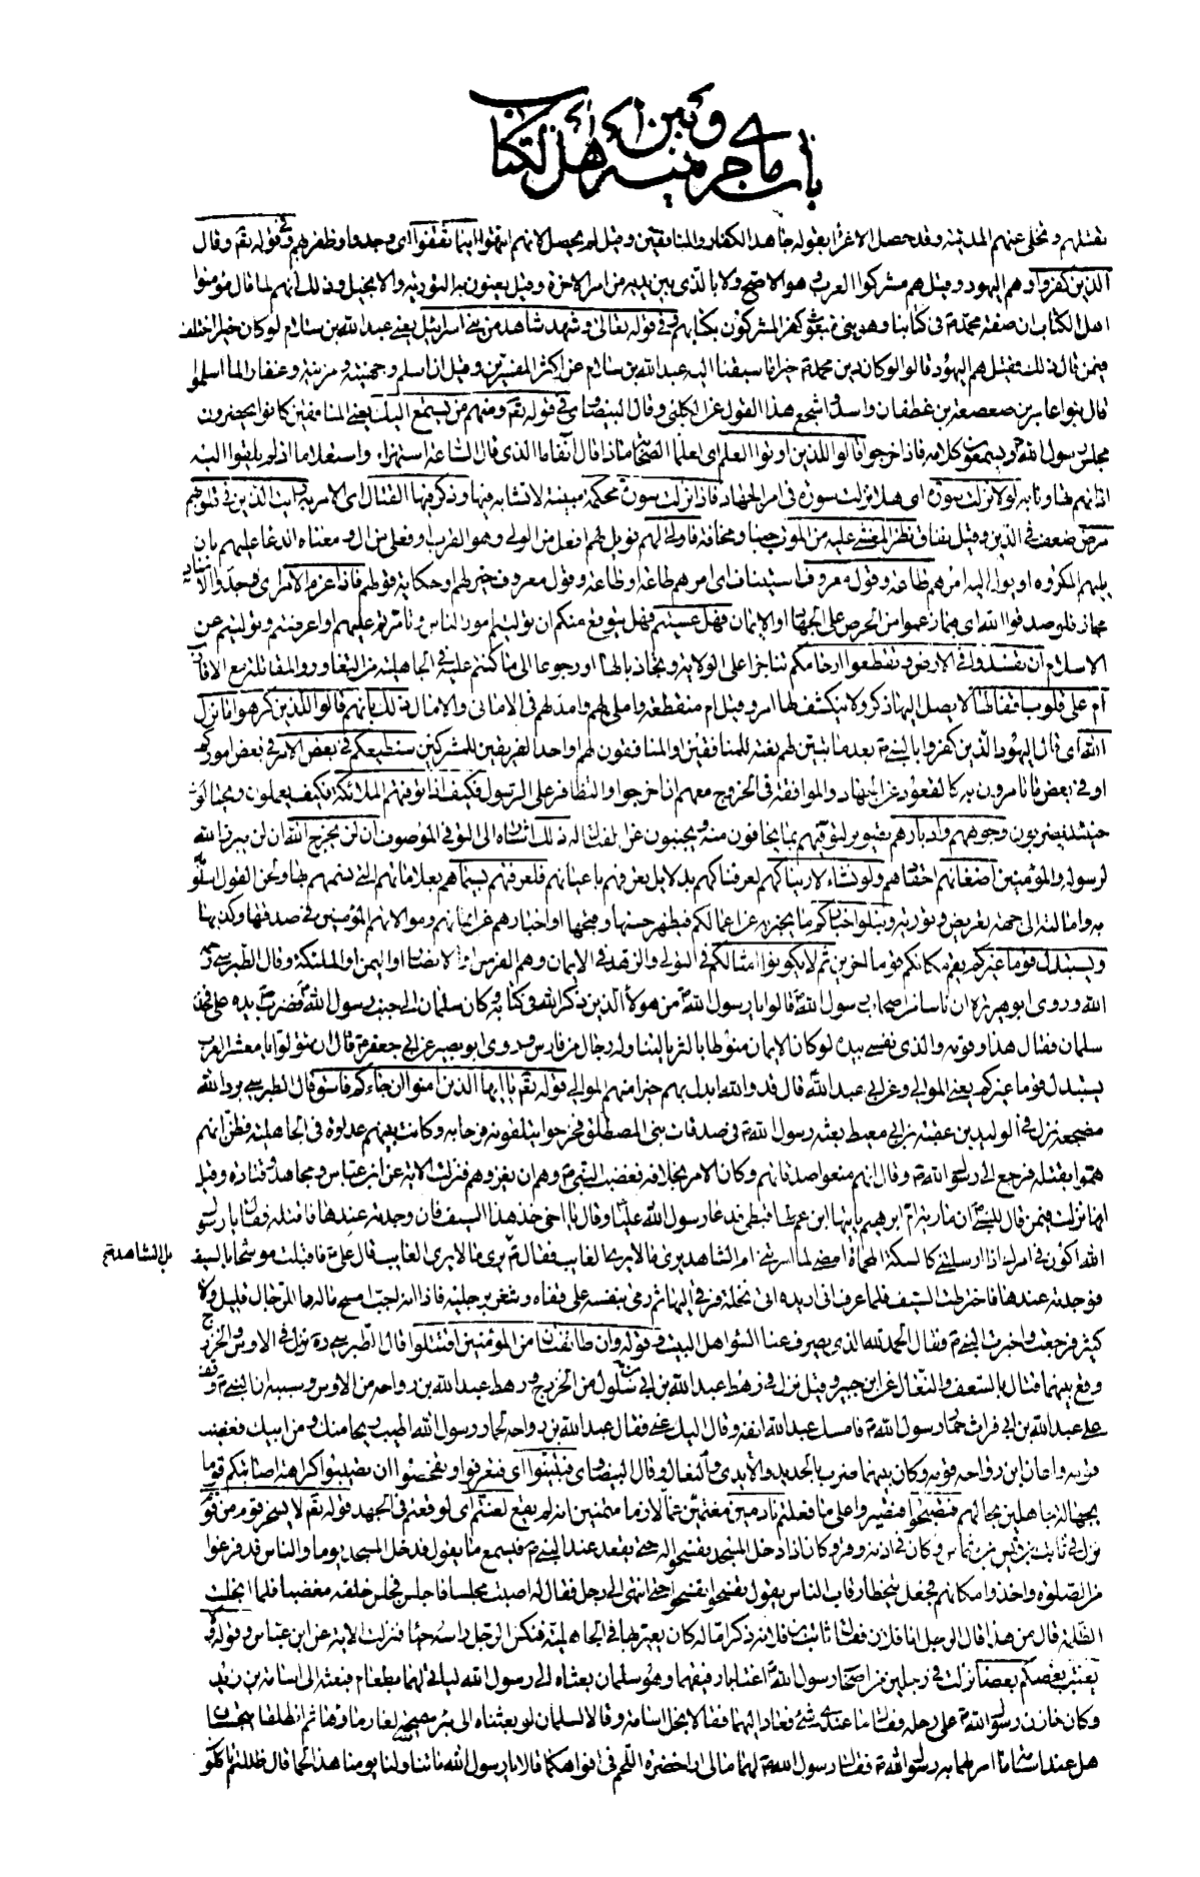 باب ما جرى بينه وبين أهل الكتاب
بقتلهم وتخلى عنهم المدينة وقد حصل الاغراء بقوله جاهد الكفار والمنافقين وقيل لم يحصل لانهم انتهوا اينما ثقفوا اى وجدوا وظفر بهم وفى قوله تع وقال
الذين كفروا وهم اليهود وقيل هم مشركوا العرب وهو الاصح ولا بالذى بين يديه من امر الاخرة وقيل يعنون به التورية والانجيل وذلك انهم لما قال مؤمنوا
اهل الكتاب ان صفة محمد فى كتابنا وهو نبى مبعوث كفر المشركون بكتابهم وفى قوله تعالى وشهد شاهد من بنى اسرائيل يعنى عبد الله بن سلام لو كان خيرا اختلف
فيمن قال ذلك فقيل هم اليهود قالوا لو كان دين محمد خيرا ما سبقنا اليه عبد الله بن سلام عن اكثر المفسرين وقيل ان اسلم وجهينة ومزينة وغفار لما اسلموا
قال بنو عامر بن صعصعة بن غطفان واسد واشجع هذا القول عن الكلبى وقال البيضاوى فى قوله تع ومنهم من يستمع اليك يعنى المنافقين كانوا يحضرون
مجلس رسول الله ويسمعون كلامه فاذا خرجوا قالوا للذين اوتوا العلم اى لعلماء الصحابة ماذا قال آنفا ما الذى قال الساعة استهزاء واستعلاما اذ لم يلقوا اليه
اذانهم تهاونا به لولا نزلت سورة اى هلا نزلت سورة فى امر الجهاد فاذا نزلت سورة محكمة مبينة لا تشابه فيها وذكر فيها القتال اى الامر به رايت الذين فى قلوبهم
مرض ضعف فى الدين وقيل نفاق نظر المغشى عليه من الموت جبنا ومخافة فاولى لهم فويل لهم افعل من الولى وهو القرب او فعلى من ال ومعناه الدعاء عليهم بان
يليهم المكروه او يؤل اليه امرهم طاعة وقول معروف استيناف اى امرهم طاعة او طاعة وقول معروف خير لهم او حكاية قولهم فاذا عزم الامر اى جد والاسناد
مجاز فلو صدقوا الله اى فيما زعموا من الحرص على الجهاد او الايمان فهل عسيتم فهل يتوقع منكم ان توليتم امور الناس وتامرتم عليهم او اعرضتم وتوليتم عن
الاسلام ان تفسدوا فى الارض وتقطعوا ارحامكم تناحرا على الولاية وتجاذبا لها او رجوعا الى ما كنتم عليه فى الجاهلية من التغاور والمقاتلة مع الاقارب
ام على قلوب اقفالها لا يصل اليها ذكر ولا ينكشف لها امر وقيل ام منقطعة واملى لهم وامد لهم فى الامانى والامال ذلك بانهم قالوا للذين كرهوا ما نزل
الله اى قال اليهود الذين كفروا بالنبى بعد ما تبين لهم نعته للمنافقين والمنافقون لهم او احد الفريقين للمشركين سنطيعكم فى بعض الامر فى بعض اموركم
او فى بعض ما تامرون به كالقعود عن الجهاد والموافقة فى الخروج معهم ان اخرجوا والتظافر على الرسول فكيف اذا توفتهم الملائكة فكيف يعملون ويحتالون
حينئذ يضربون وجوههم وادبارهم تصوير لتوفيهم بما يخافون منه ويجبنون عن القتال له ذلك اشارة الى التوفى الموصوف ان لن يخرج الله ان لن يبرز الله
لرسوله والمؤمنين اضغانهم احقادهم ولو نشاء لاريناكهم لعرفناكهم بدلايل تعرفهم باعيانهم فلعرفتهم بسيماهم بعلاماتهم التى نسمهم بها ولحن القول اسلوبه
به وامالته الى جهة تعريض وتورية ونبلوا اخباركم ما يخبر به عن اعمالكم فيظهر حسنها وقبحها او اخبارهم عن ايمانهم وموالاتهم المؤمنين فى صدقها وكذبها
ويستبدل قوما غيركم يقم مكانكم قوما اخرين ثم لا يكونوا امثالكم فى التولى والزهد فى الايمان وهم الفرس او الانصار او اليمن او الملئكة وقال الطبرسى ره
الله وروى ابو هريرة ان ناسا من اصحاب رسول الله قالوا يا رسول الله من هؤلاء الذين ذكر الله فى كتابه وكان سلمان الى جنب رسول الله فضرب بيده على فخذ
سلمان فقال هذا وقومه والذى نفسى بيده لو كان الايمان منوطا بالثريا لتناوله رجال من فارس وروى ابو بصير عن ابى جعفر قال ان تتولوا يا معشر العرب
يستبدل قوما غيركم يعنى الموالى وعن ابى عبد الله قال قد والله ابدل بهم خيرا منهم الموالى قوله تع يا ايها الذين امنوا ان جاءكم فاسق قال الطبرسى برد الله
مضجعه نزل فى الوليد بن عقبة بن ابى معيط بعثه رسول الله فى صدقات بنى المصطلق فخرجوا يتلقونه فرحا به وكانت بينهم عداوة فى الجاهلية فظن انهم
هموا بقتله فرجع الى رسول الله وقال انهم منعوا صدقاتهم وكان الامر بخلافه فغضب النبى وهم ان يغزوهم فنزلت الاية عن ابن عباس ومجاهد وقتادة وقيل
انها نزلت فيمن قال للنبى ان مارية ام ابرهيم ياتيها ابن عم لها قبطى فدعا رسول الله عليا وقال يا اخى خذ هذا السيف فان وجدته عندها فاقتله فقال يا رسول
الله اكون فى امرك اذا ارسلتنى كالسكة المحماة امضى لما امرتنى ام الشاهد يرى ما لا يرى الغايب فقال بل الشاهد يرى ما لا يرى الغايب قال على فاقبلت موشحا بالسيف
بل الشاهد
فوجدته عندها فاخترطت السيف فلما عرف انى اريده اتى نخلة فرقى اليها ثم رمى بنفسه على قفاه وشغر برجليه فاذا انه اجب امسح ما له مما للرجال قليل ولا
كثير فرجعت واخبرت النبى فقال الحمد لله الذى يصرف عنا السوء اهل البيت وفى قوله وان طائفتان من المؤمنين اقتتلوا قال الطبرسى ره نزل فى الاوس والخزرج
وقع بينهما قتال بالسعف والنعال عن ابن جبير وقيل نزل فى رهط عبد الله بن ابى سلول من الخزرج ورهط عبد الله بن رواحة من الاوس وسببه ان النبى وقف
على عبد الله بن ابى فراث حمار رسول الله فامسك عبد الله انفه وقال اليك عنى فقال عبد الله بن رواحة لحمار رسول الله اطيب ريحا منك ومن ابيك فغضب
قومه واعان ابن رواحة قومه وكان بينهما ضرب بالحديد والايدى والنعال وقال البيضاوى فتبينوا اى فتعرفوا وتفحصوا ان تصيبوا كراهة اصابتكم قوما
بجهالة جاهلين بحالهم فتصبحوا فتصيروا على ما فعلتم نادمين مغتمين غما لازما متمنين انه لم يقع لعنتم اى لوقعتم فى الجهد قوله تع لا يسخر قوم من قوم
نزل فى ثابت بن قيس بن شماس وكان فى اذنه وقر وكان اذا دخل المسجد تفسحوا له حتى يقعد عند النبى فيسمع ما يقول فدخل المسجد يوما والناس قد فرغوا
من الصلوة واخذوا مكانهم فجعل يتخطا رقاب الناس يقول تفسحوا تفسحوا حتى انتهى الى رجل فقال له اصبت مجلسا فاجلس فجلس خلفه مغضبا فلما انجلت
الظلمة قال من هذا قال الرجل انا فلان فقال ثابت ابن فلانة ذكر اما له كان يعير بها فى الجاهلية فنكس الرجل راسه حياء فنزلت الاية عن ابن عباس وقوله ولا
يغتب بعضكم بعضا نزلت فى رجلين من اصحاب رسول الله اغتابا رفيقهما وهو سلمان بعثاه الى رسول الله لياتى لهما بطعام فبعثه الى اسامة بن زيد
وكان خازن رسول الله على رحله فقال ما عندى شئ فعاد اليهما فقالا بخل اسامة وقالا لسلمان لو بعثناه الى بئر سميحة لغار ماؤها ثم انطلقا يتجسسان
هل عند اسامة ما امر لهما به رسول الله فقال رسول الله لهما ما لى ارى خضرة اللحم فى افواهكما قالا يا رسول الله ما تناولنا يومنا هذا لحما قال ظللتم تاكلون